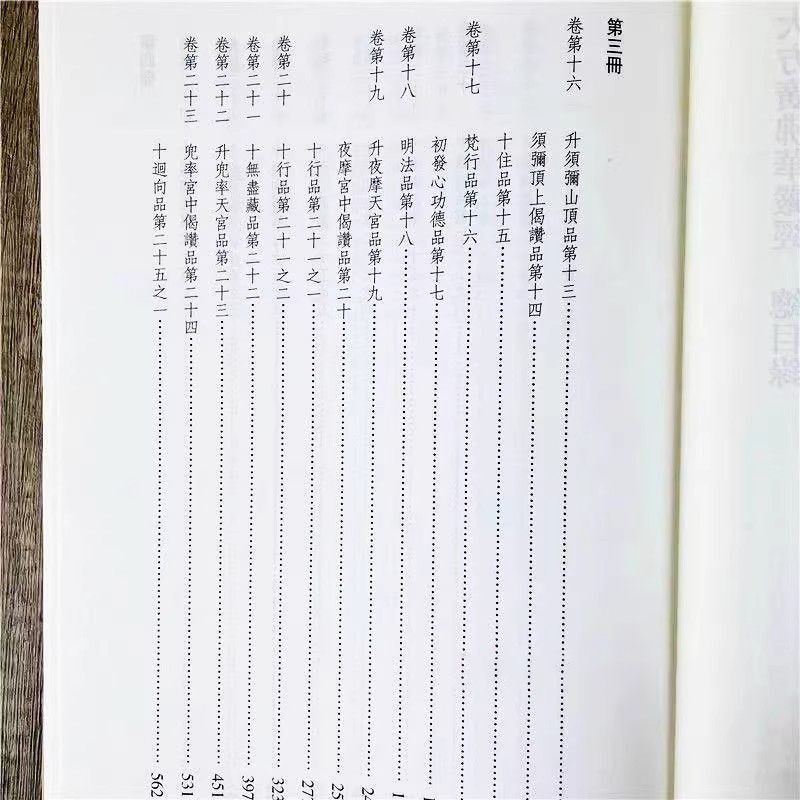 第三冊
卷第十六 升須彌山頂品第十三
須彌頂上偈讚品第十四
十住品第十五
卷第十七 梵行品第十六
初發心功德品第十七
卷第十八 明法品第十八
卷第十九 升夜摩天宮品第十九
夜摩宮中偈讚品第二十
十行品第二十一之一
卷第二十 十行品第二十一之二 323
卷第二十一 十無盡藏品第二十二 397
卷第二十二 升兜率天宮品第二十三 451
卷第二十三 兜率宮中偈讚品第二十四 531
十迴向品第二十五之一 562